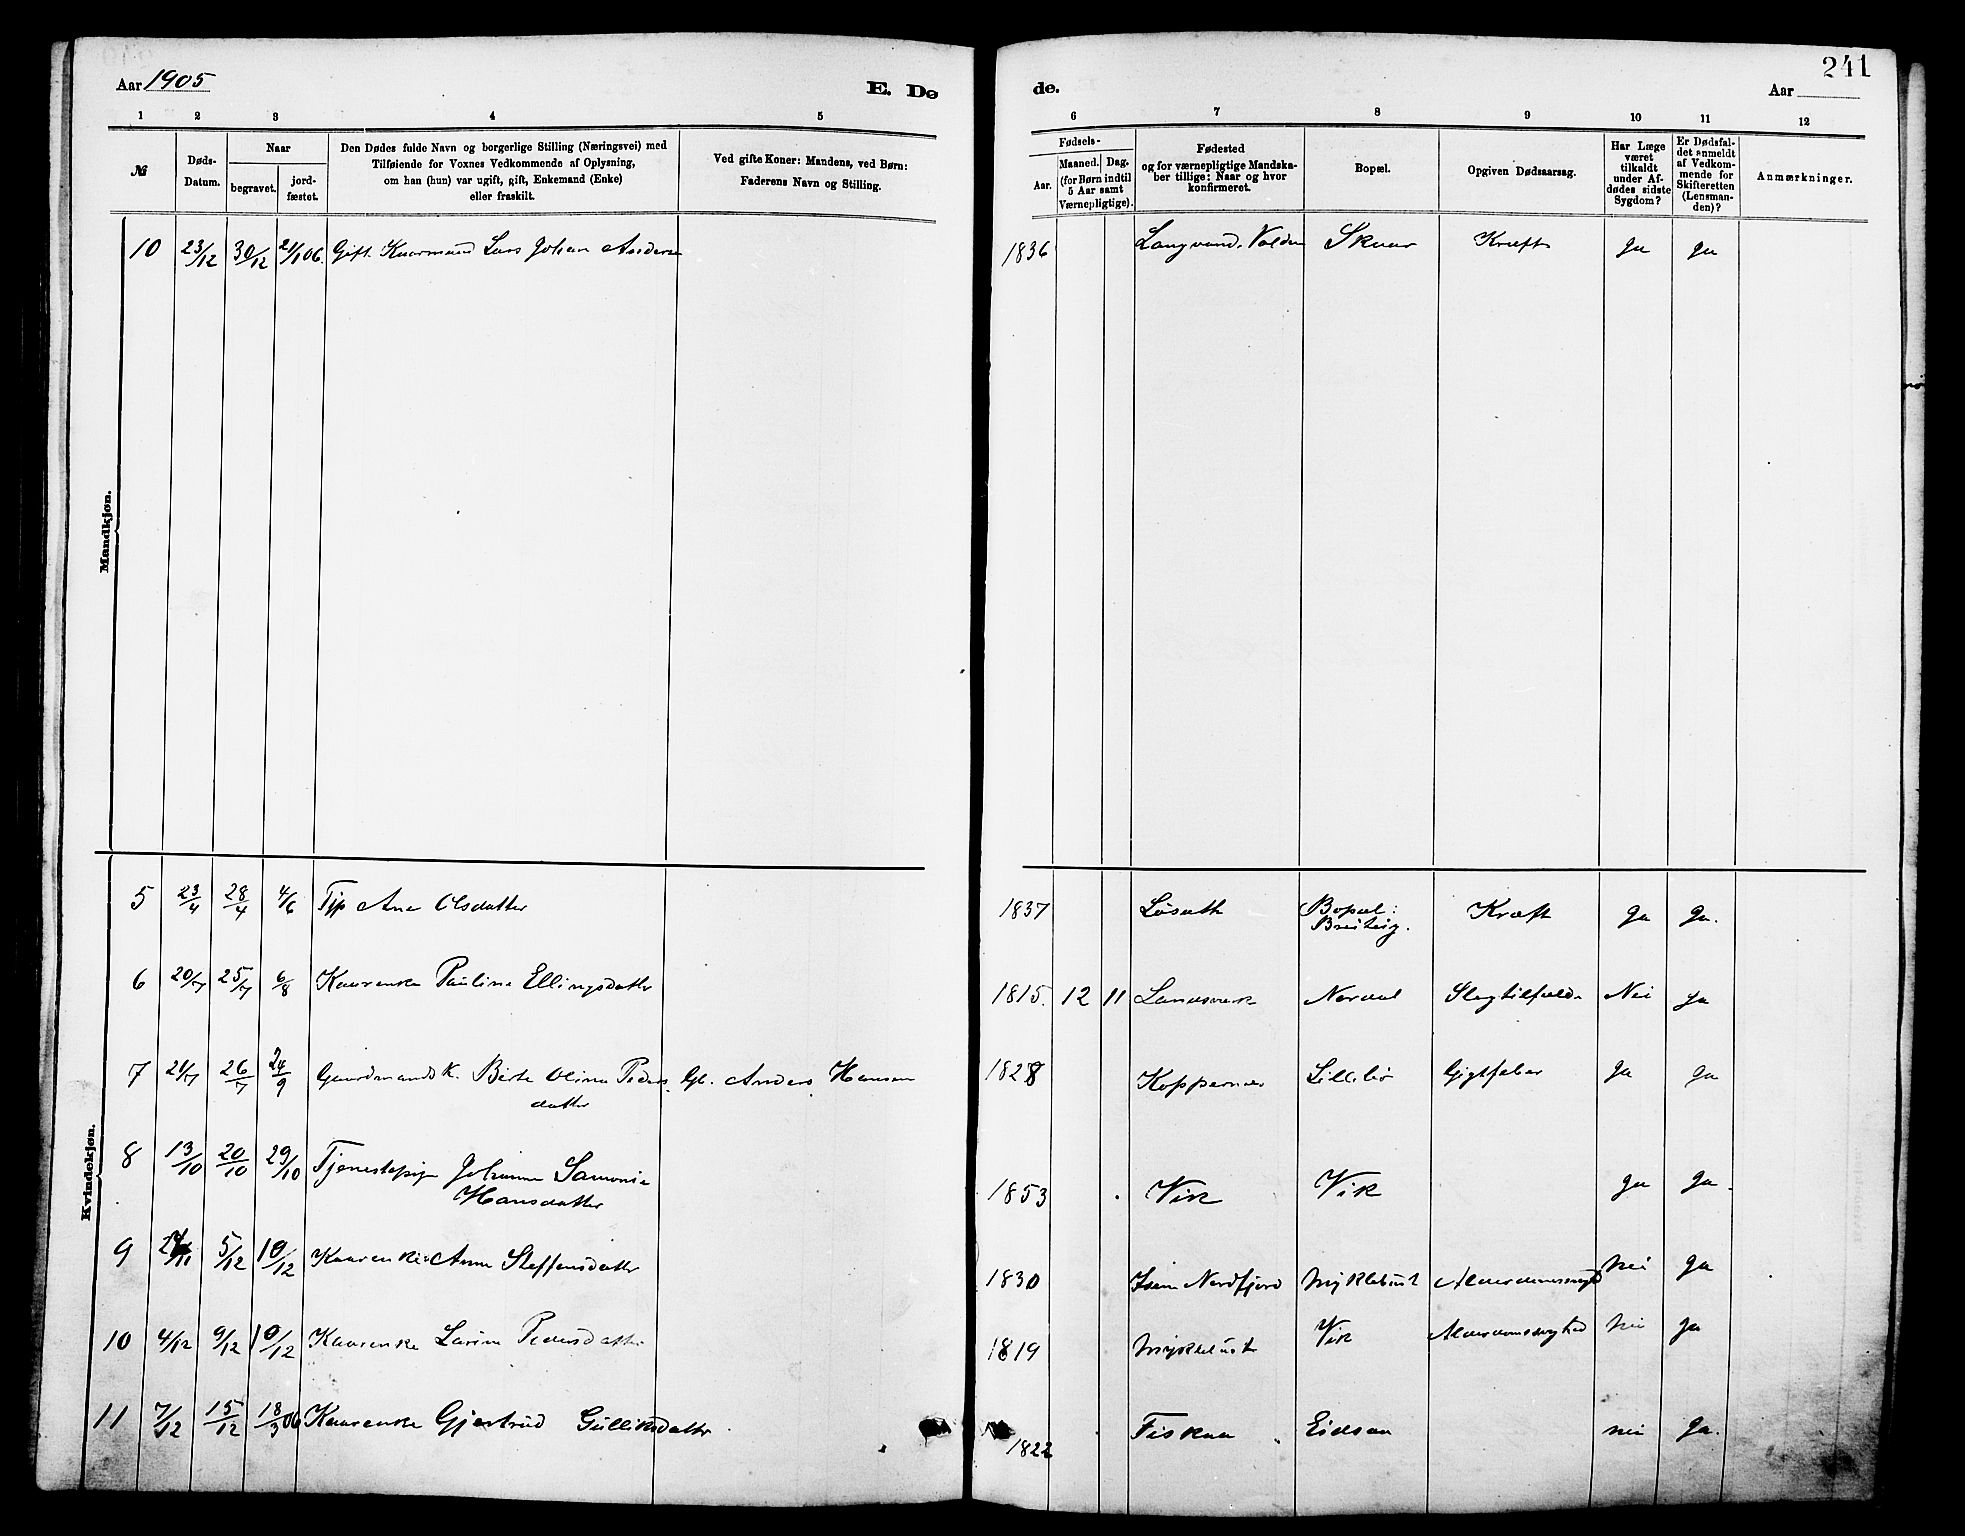 Aar 1905
E. Dø
de.
241
Aar
1 2 3 4 5
6 7 8 9 10 11 12
№
Døds-
Datum.
Naar
begravet.
jord-
fæstet.
Den Dødes fulde Navn og borgerlige Stilling (Næringsvei) med
Tilføiende for Voxnes Vedkommende af Oplysning,
om han (hun) var ugift, gift, Enkemand (Enke)
eller fraskilt.
Ved gifte Koner: Mandens, ved Børn:
Faderens Navn og Stilling.
Fødsels-
Aar.
Maaned. Dag.
(for Børn indtil
5 Aar samt
Værnepligtige).
Fødested
og for værnepligtige Mandska-
ber tillige: Naar og hvor
konfirmeret.
Bopæl.
Opgiven Dødsaarsag.
Har Læge
været
tilkaldt
under Af-
dødes sidste
Sygdom?
Er Dødsfal-
det anmeldt
af Vedkom-
mende for
Skifteretten
(Lensman-
den)?
Anmærkninger.
Mandkjøn.
10 23/12 30/12 21/1 06. Gift Kaarmand Lars Johan Andersen 1836 Langvand. Volden Skaar Kræft Ja Ja
Kvindekjøn.
5 23/4 28/4 4/6 Tjp Ane Olsdatter 1837 Løseth Bopæl: Kræft Ja Ja.
6 20/7 25/7 6/8 Kaarenke Pauline Ellingsdatter 1815. 12 11 Landsverk Nordal Slagtilfælde Nei Ja
7 21/7 26/7 24/9 Gaardmandsk. Berte Oline Peders. Gb. Anders Hansen 1828 Koppernæs Lillebø Gigtfeber Ja Ja
datter
8 13/10 20/10 29/10 Tjenestepige Johanne Samonie 1853 Vik Vik Ja Ja.
Hansdatter
9 5/12 10/12 Kaarenke Anne Steffensdatter 1830 Nordfjord Myklebust Alderdomssvaghed Nei Ja
10 4/12 9/12 10/12 Kaarenke Larine Pedersdatter 1819 Myklebust Vik Alderdomssvaghed Nei Ja
11 7/12 15/12 18/3 06 Kaarenke Gjertrud Gulliksdatter 1822 Fiskaa Eidsaa Nei Ja.